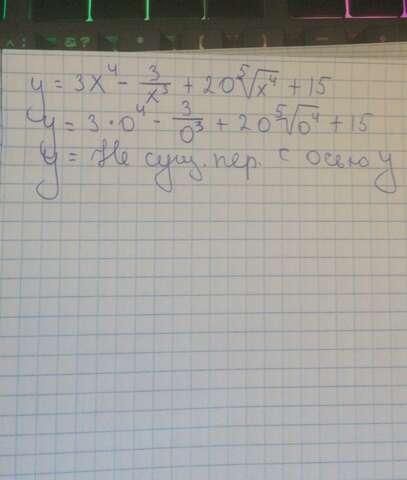 y = 3x⁴ - 3/x³ + 20⁵√x⁴ + 15
y = 3·0⁴ - 3/0³ + 20⁵√0⁴ + 15
y = Не сущ. пер. с осью y